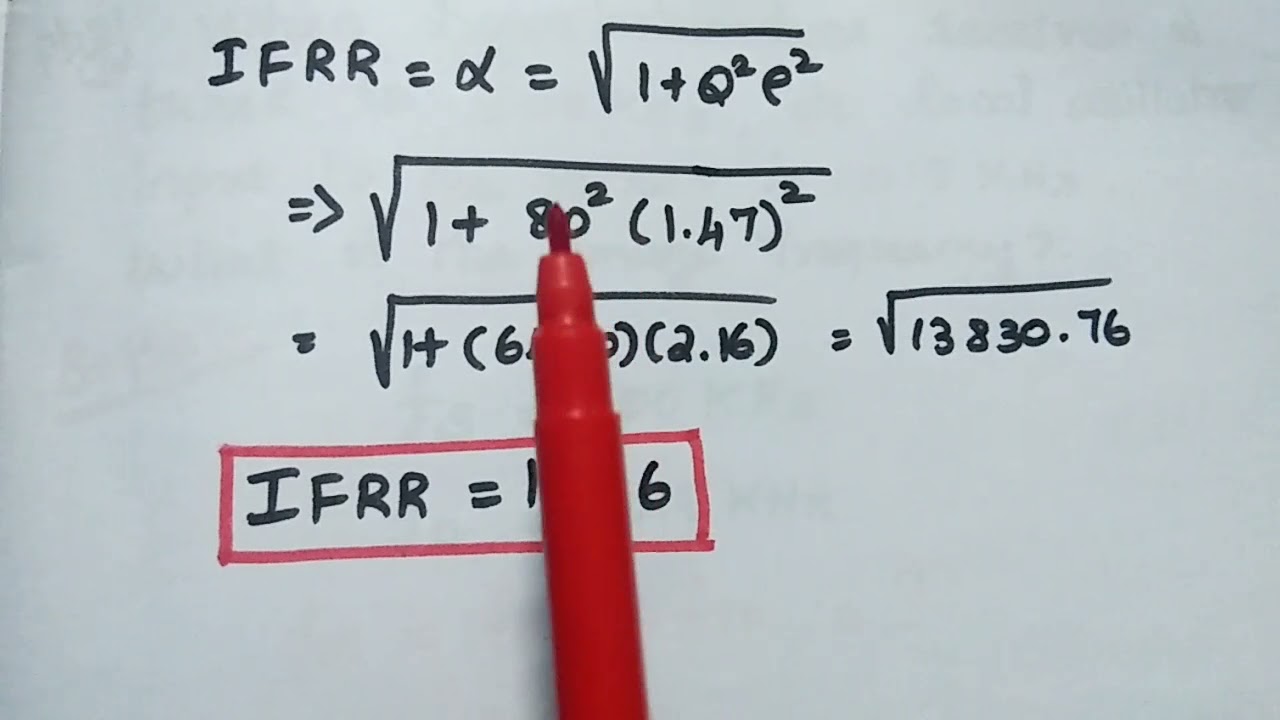 IFRR = α = √1+Q²ρ²
=> √1 + 80² (1.47)²
= √1+(6 )(2.16) = √13830.76
IFRR = 1 6